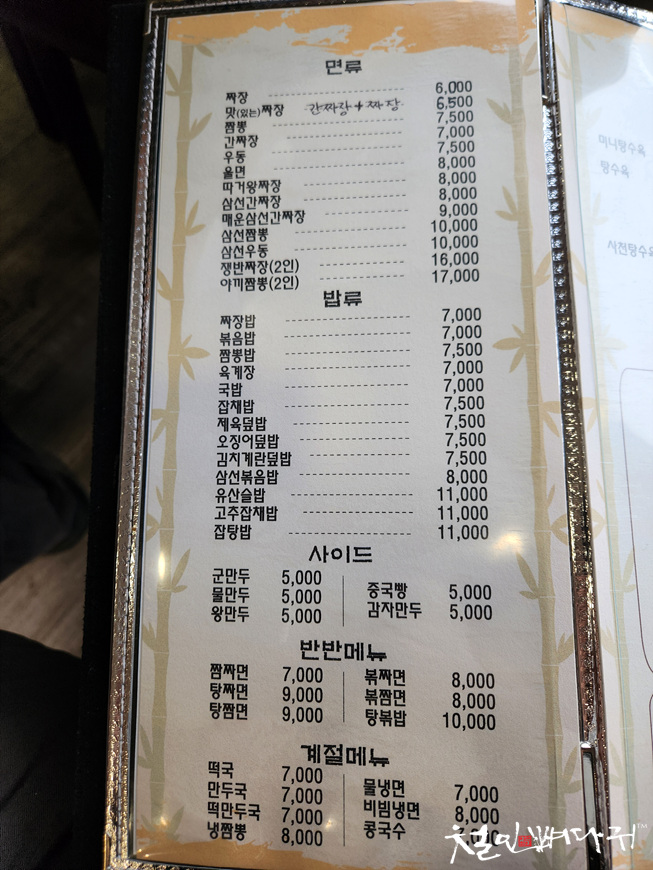 면류
짜장 6,000
맛(있는)짜장 간짜장+짜장 6,500
짬뽕 7,500
간짜장 7,000
우동 7,500
울면 8,000
따거왕짜장 8,000
삼선간짜장 8,000
매운삼선간짜장 9,000
삼선짬뽕 10,000
삼선우동 10,000
쟁반짜장(2인) 16,000
야끼짬뽕(2인) 17,000
밥류
짜장밥 7,000
볶음밥 7,000
짬뽕밥 7,500
육계장 7,000
국밥 7,000
잡채밥 7,500
제육덮밥 7,500
오징어덮밥 7,500
김치계란덮밥 7,500
삼선볶음밥 8,000
유산슬밥 11,000
고추잡채밥 11,000
잡탕밥 11,000
사이드
군만두 5,000 중국빵 5,000
물만두 5,000 감자만두 5,000
왕만두 5,000
반반메뉴
짬짜면 7,000 볶짜면 8,000
탕짜면 9,000 볶짬면 8,000
탕짬면 9,000 탕볶밥 10,000
계절메뉴
떡국 7,000 물냉면 7,000
만두국 7,000 비빔냉면 8,000
떡만두국 7,000 콩국수
냉짬뽕 8,000
미니탕수육
탕수육
사천탕수육